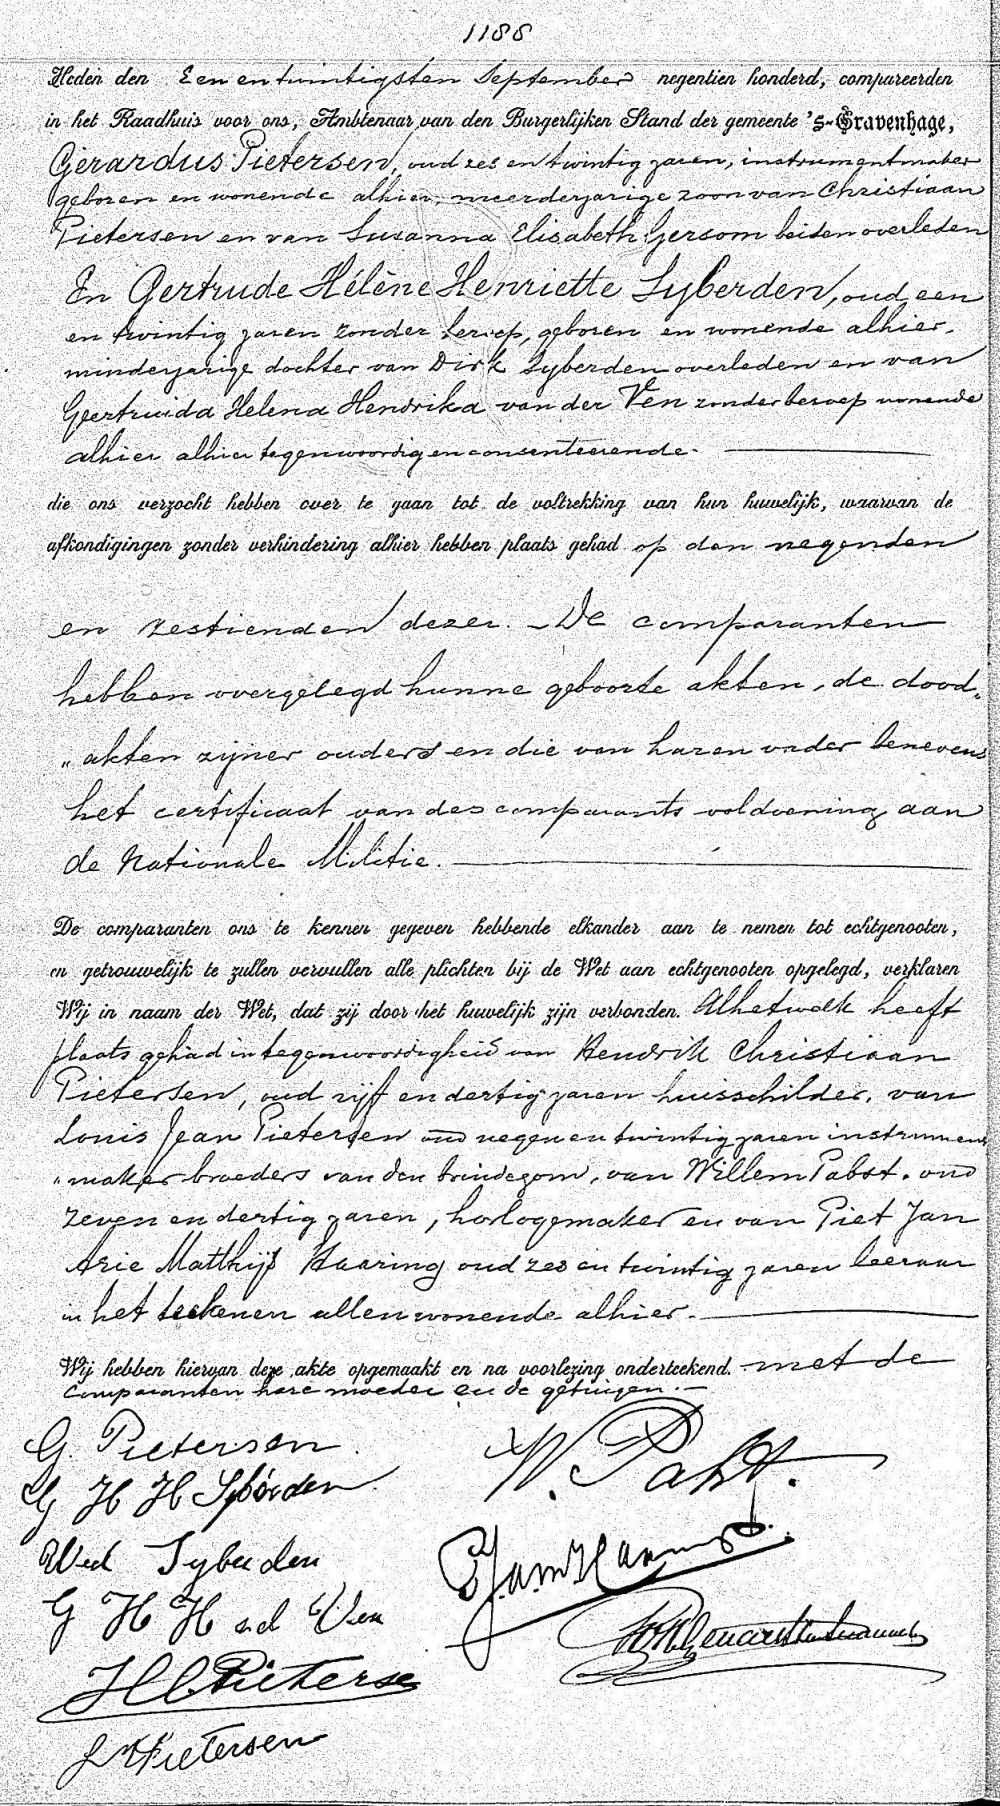 1188
Heden den Een en twintigsten September negentien honderd, compareerden
in het Raadhuis voor ons, Ambtenaar van den Burgerlijken Stand der gemeente 's-Gravenhage,
Gerardus Pietersen, oud zes en twintig jaren, instrumentmaker
geboren en wonende alhier, meerderjarige zoon van Christiaan
Pietersen en van Susanna Elisabeth Gersom beiden overleden
En Gertrude Hélène Henriette Syberden, oud een
en twintig jaren zonder beroep, geboren en wonende alhier,
minderjarige dochter van Dirk Syberden overleden en van
Geertruida Helena Hendrika van der Ven zonder beroep wonende
alhier alhier tegenwoordig en consenteerende.
die ons verzocht hebben over te gaan tot de voltrekking van hun huwelijk, waarvan de
afkondigingen zonder verhindering alhier hebben plaats gehad op den negenden
en zestienden dezer. – De comparanten
hebben overgelegd hunne geboorte akten, de dood„
„akten zijner ouders en die van haren vader benevens
het certificaat van des comparants voldoening aan
de Nationale Militie.
De comparanten ons te kennen gegeven hebbende elkander aan te nemen tot echtgenooten,
en getrouwelijk te zullen vervullen alle plichten bij de Wet aan echtgenooten opgelegd, verklaren
Wij in naam der Wet, dat zij door het huwelijk zijn verbonden. Alhetwelk heeft
plaats gehad in tegenwoordigheid van Hendrik Christiaan
Pietersen, oud vijf en dertig jaren huisschilder, van
Louis Jean Pietersen oud negen en twintig jaren instrument
„maker broeders van den bruidegom, van Willem Pabst, oud
zeven en dertig jaren, horlogemaker en van Piet Jan
Arie Matthijs Haaring oud zes en twintig jaren leeraar
in het teekenen allen wonende alhier.
Wij hebben hiervan deze akte opgemaakt en na voorlezing onderteekend. met de
Comparanten hare moeder en de getuigen. –
G. Pietersen
W. Pabst.
G H H Syberden
Wed Syberden
P J A M Haaring
G H H v d Ven
H C Pieterse
L J Pietersen